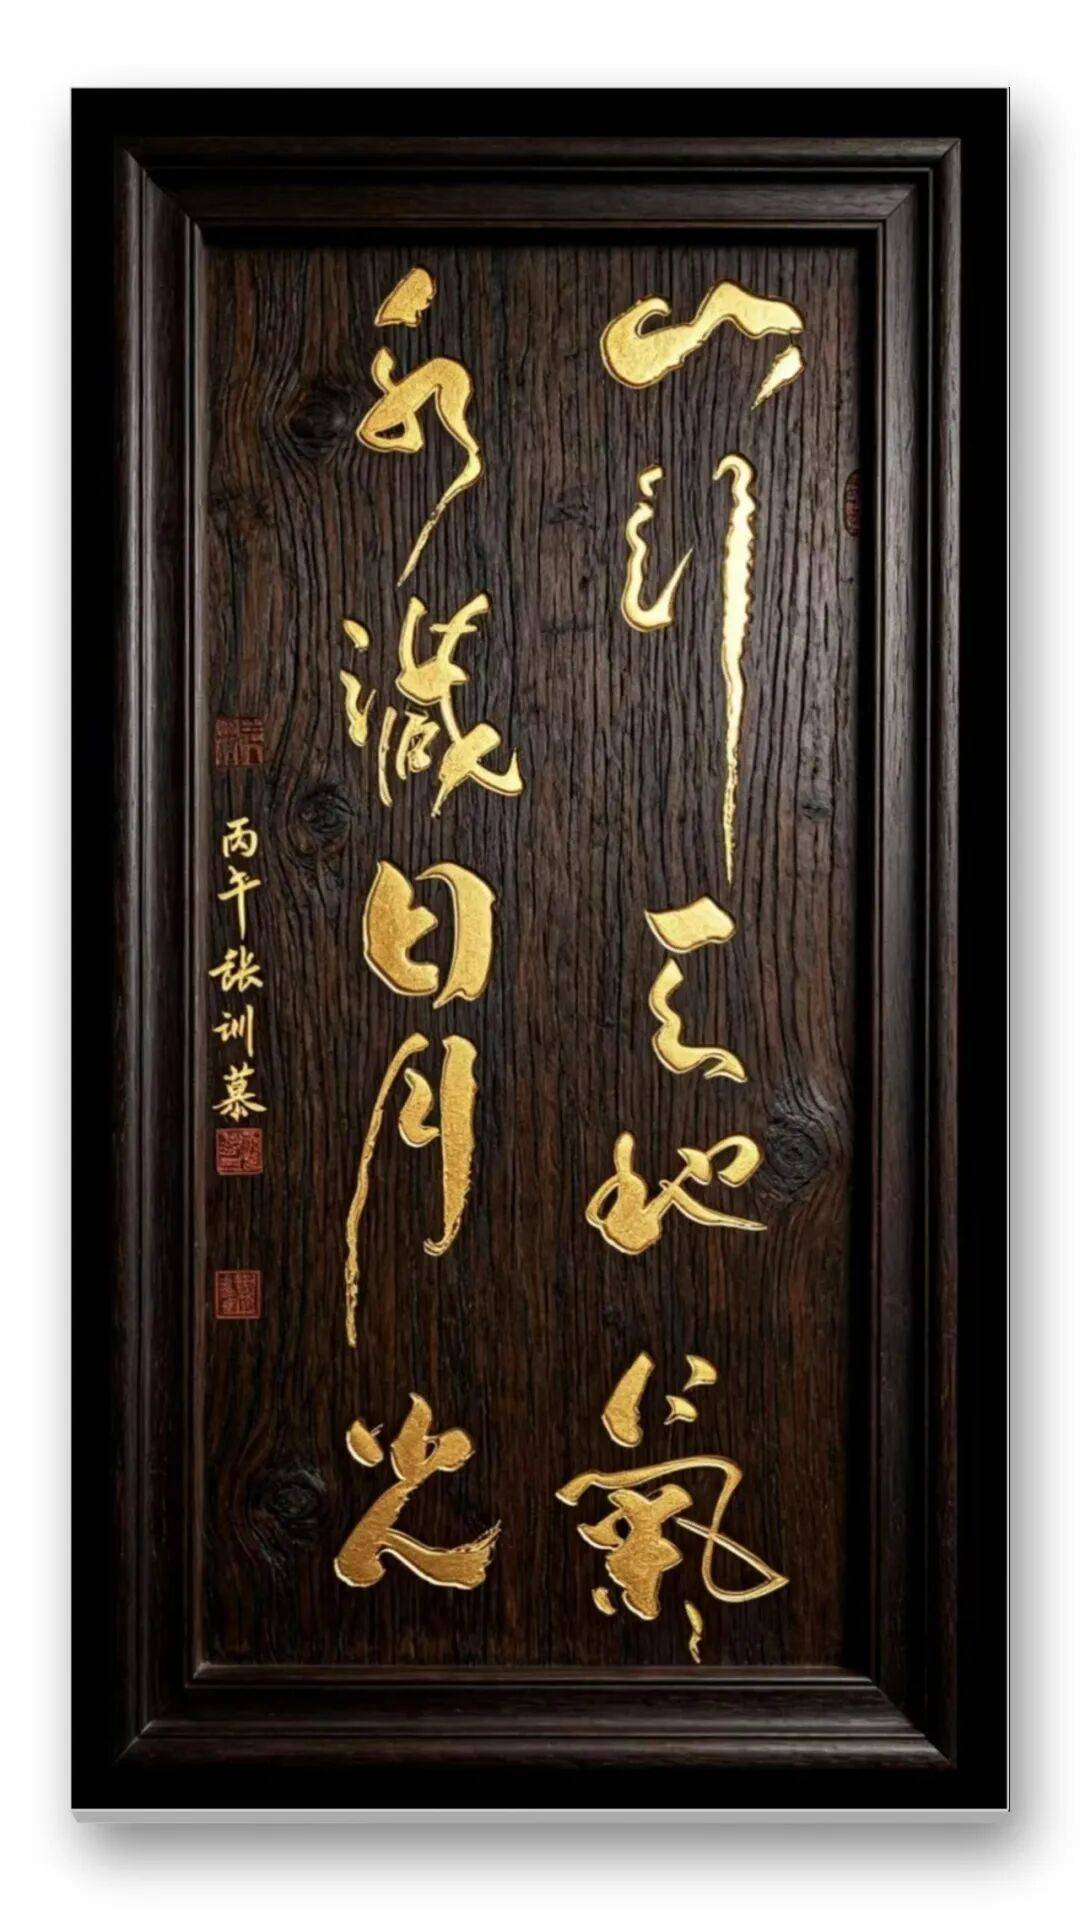 山引天地氣
水藏日月光
丙午张训慕